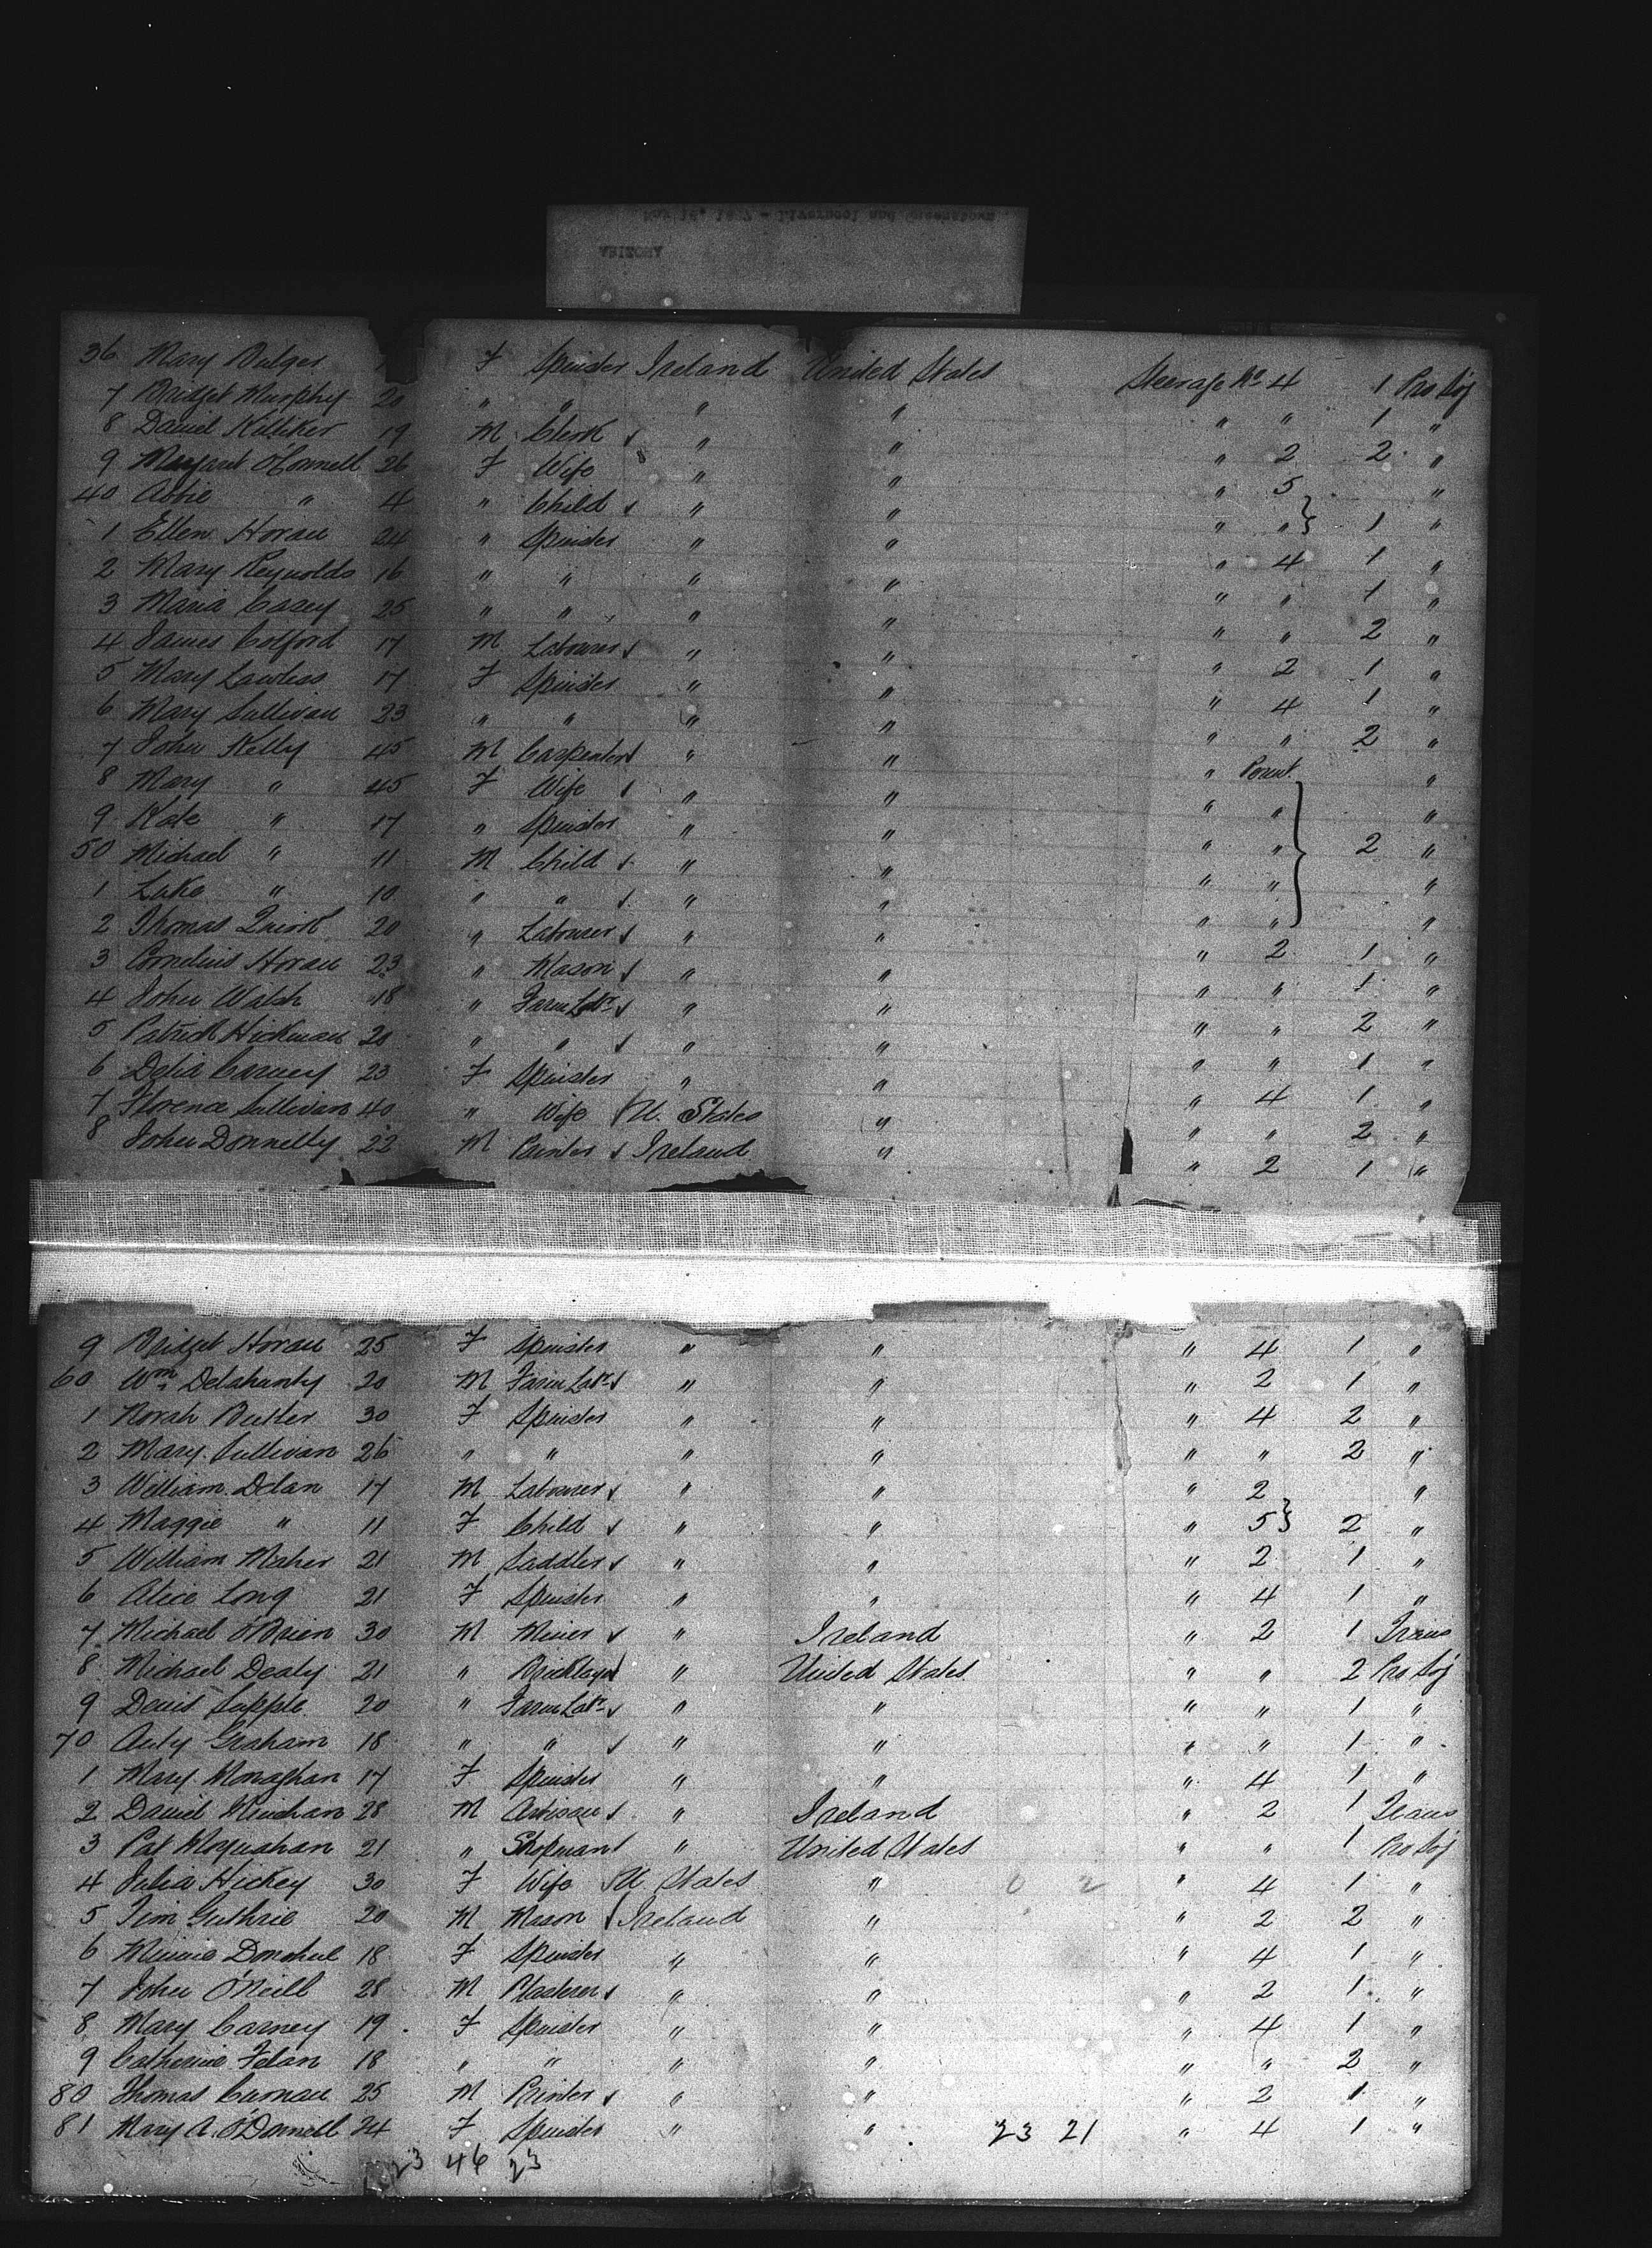 36 Mary Bulger F Spinster Ireland United States Steerage No 4 1 Pro Soj
7 Bridget Murphy 20 " " " " " " 1 "
8 Daniel Killiker 19 M Clerk " " " 2 2 "
9 Margaret O'Connell 26 F Wife " " " 5 "
40 Abbie " 4 " Child " " " " 1 "
1 Ellen Horan 24 " Spinster " " " 4 1 "
2 Mary Reynolds 16 " " " " " " 1 "
3 Maria Casey 25 " " " " " " 2 "
4 James Colford 17 M Labourer " " " 2 1 "
5 Mary Lawless 17 F Spinster " " " 4 1 "
6 Mary Sullivan 23 " " " " " " 2 "
7 John Kelly 45 M Carpenter " " " "
8 Mary " 45 F Wife " " " " "
9 Kate " 17 " Spinster " " " " 2 "
50 Michael " 11 M Child " " " " "
1 Luke " 10 " " " " " " "
2 Thomas Quirk 20 " Labourer " " " 2 1 "
3 Cornelius Horan 23 " Mason " " " " 1 "
4 John Walsh 18 " Farm Labr " " " " 2 "
5 Patrick Hickman 20 " " " " " " 1 "
6 Delia Carney 23 F Spinster " " " 4 1 "
7 Florence Sullivan 40 " Wife U. States " " " 2 "
8 John Donnelly 22 M Painter Ireland " " 2 1 "
9 Bridget Horan 25 F Spinster " " " 4 1 "
60 Wm Delahunty 20 M Farm Labr " " " 2 1 "
1 Norah Butler 30 F Spinster " " " 4 2 "
2 Mary Sullivan 26 " " " " " " 2 "
3 William Dolan 17 M Labourer " " " 2 "
4 Maggie " 11 F Child " " " 5 2 "
5 William Maher 21 M Saddler " " " 2 1 "
6 Alice Long 21 F Spinster " " " 4 1 "
7 Michael O'Brien 30 M Miner " Ireland " 2 1 Trans
8 Michael Dealy 21 " Bricklayer " United States " " 2 Pro Soj
9 Denis Supple 20 " Farm Labr " " " " 1 "
70 Anty Graham 18 " " " " " " 1 "
1 Mary Monaghan 17 F Spinster " " " 4 1 "
2 Daniel 28 M Artisan " Ireland " 2 1 Trans
3 Pat 21 " Shopman " United States " " 1 Pro Soj
4 Julia Hickey 30 F Wife U. States " " 4 1 "
5 Tim Guthrie 20 M Mason Ireland " " 2 2 "
6 Minnie Donohue 18 F Spinster " " " 4 1 "
7 John O'Neill 28 M Plasterer " " " 2 1 "
8 Mary Carney 19 F Spinster " " " 4 1 "
9 Catherine Felan 18 " " " " " " 2 "
80 Thomas 25 M Printer " " " 2 1 "
81 Mary A. O'Donnell 24 F Spinster " " 23 21 " 4 1 "
23 46 23